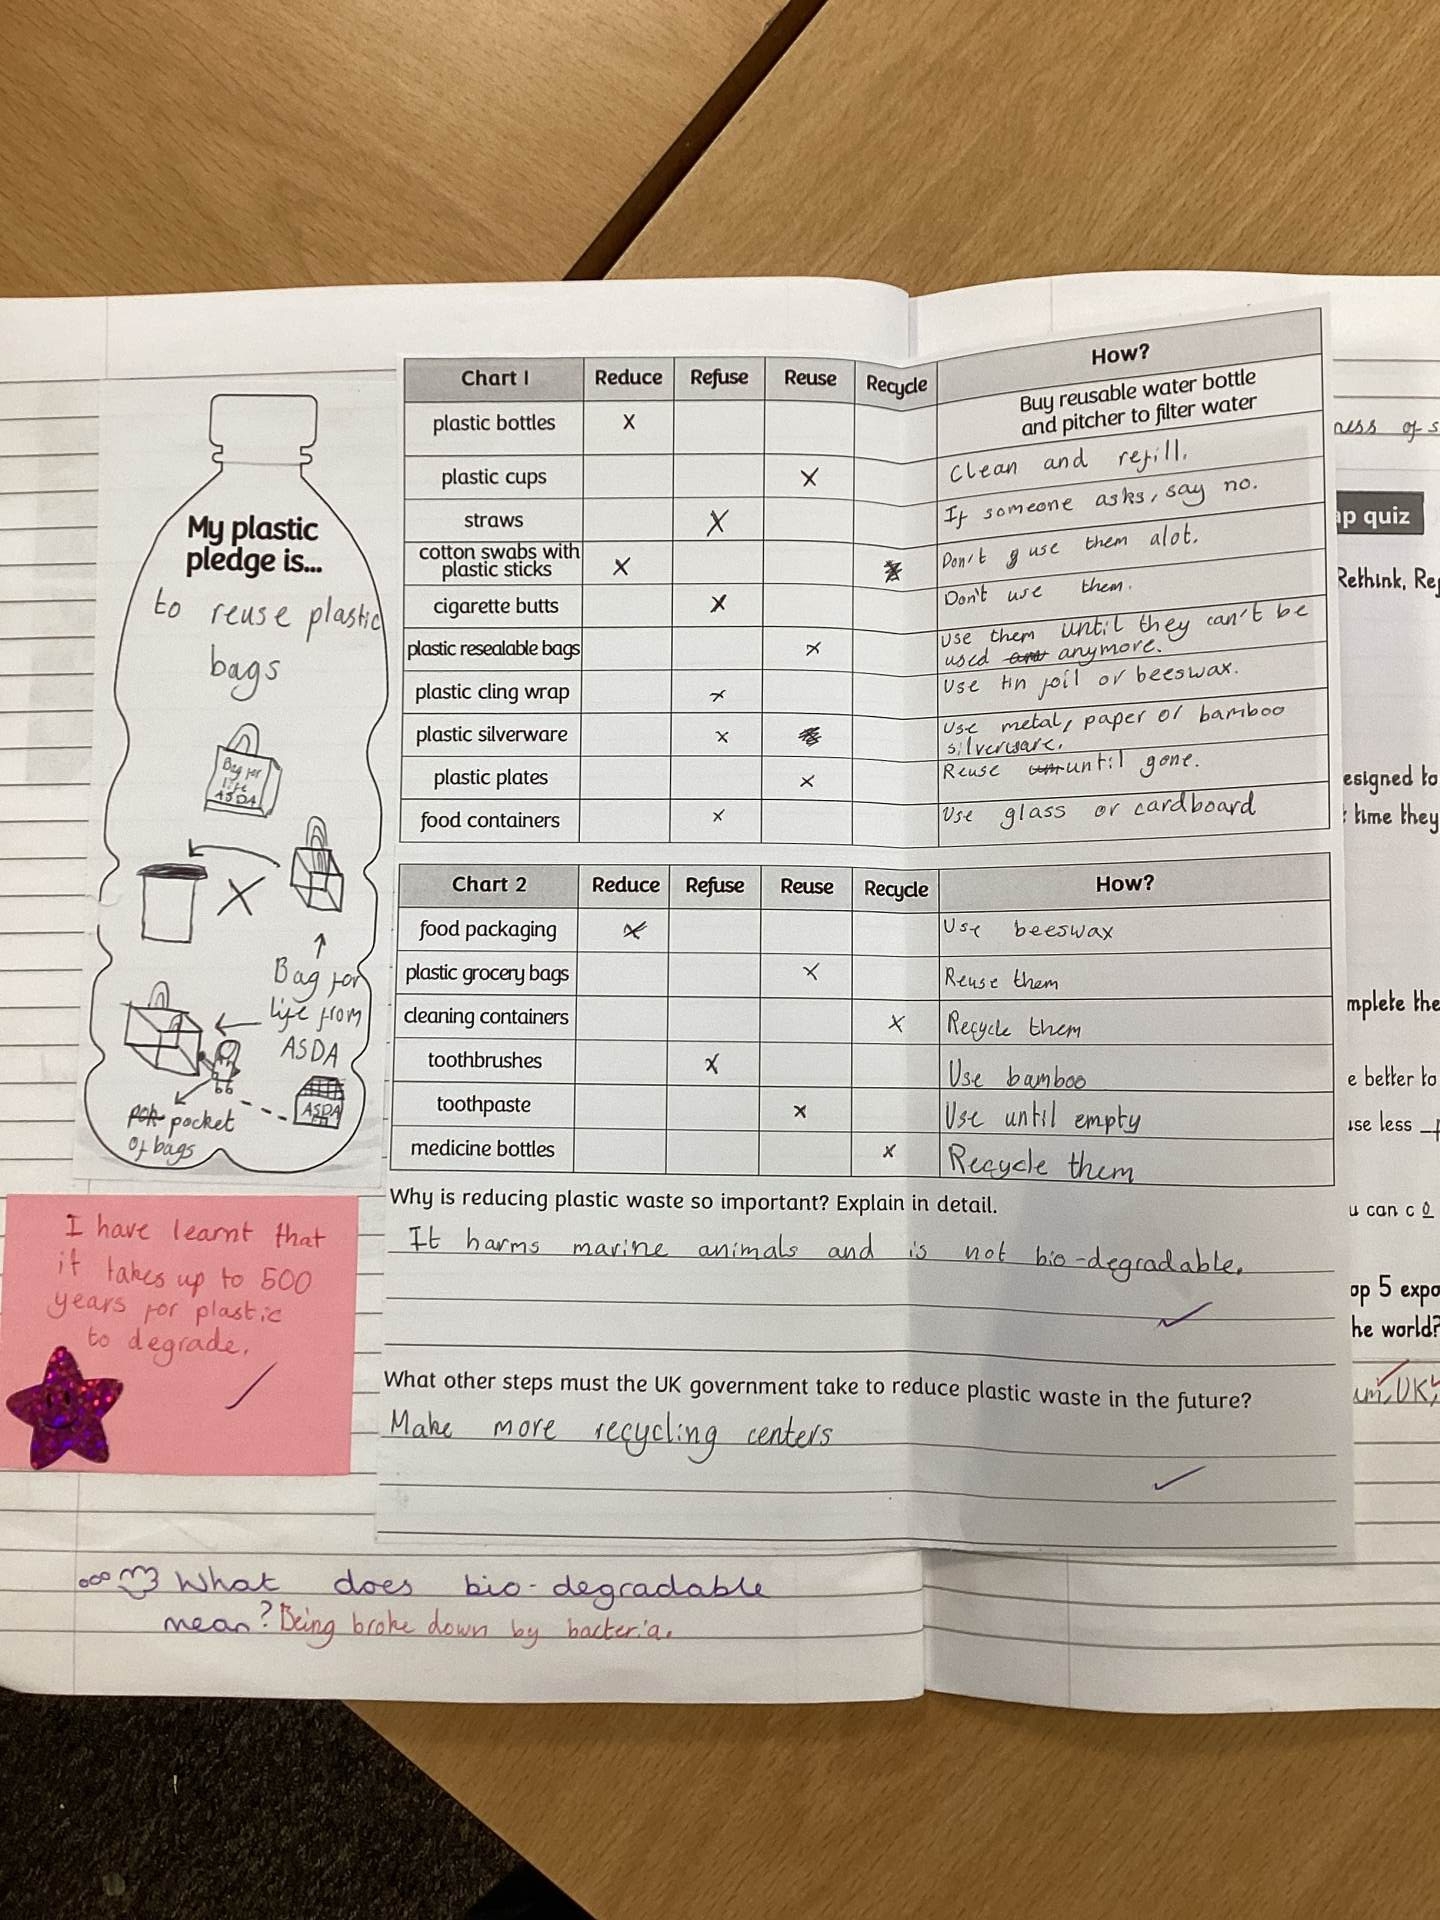 My plastic
pledge is...
to reuse plastic
bags
Bag for
life
ASDA
Bag for
life from
ASDA
pocket
of bags
ASDA
Chart 1 Reduce Refuse Reuse Recycle How?
plastic bottles x Buy reusable water bottle
and pitcher to filter water
plastic cups x Clean and refill.
straws x If someone asks, say no.
cotton swabs with
plastic sticks x Don't use them alot.
cigarette butts x Don't use them.
plastic resealable bags x Use them until they can't be
used anymore.
plastic cling wrap x Use tin foil or beeswax.
plastic silverware x Use metal, paper or bamboo
silverware.
plastic plates x Reuse until gone.
food containers x Use glass or cardboard
Chart 2 Reduce Refuse Reuse Recycle How?
food packaging x Use beeswax
plastic grocery bags x Reuse them
cleaning containers x Recycle them
toothbrushes x Use bamboo
toothpaste x Use until empty
medicine bottles x Recycle them
Why is reducing plastic waste so important? Explain in detail.
It harms marine animals and is not bio-degradable.
What other steps must the UK government take to reduce plastic waste in the future?
Make more recycling centers
I have learnt that
it takes up to 500
years for plastic
to degrade.
What does bio-degradable
mean? Being broke down by bacteria.
ness of s
ap quiz
Rethink, Re
esigned to
time they
mplete the
e better to
use less
u can c o
op 5 expo
he world?
UK,